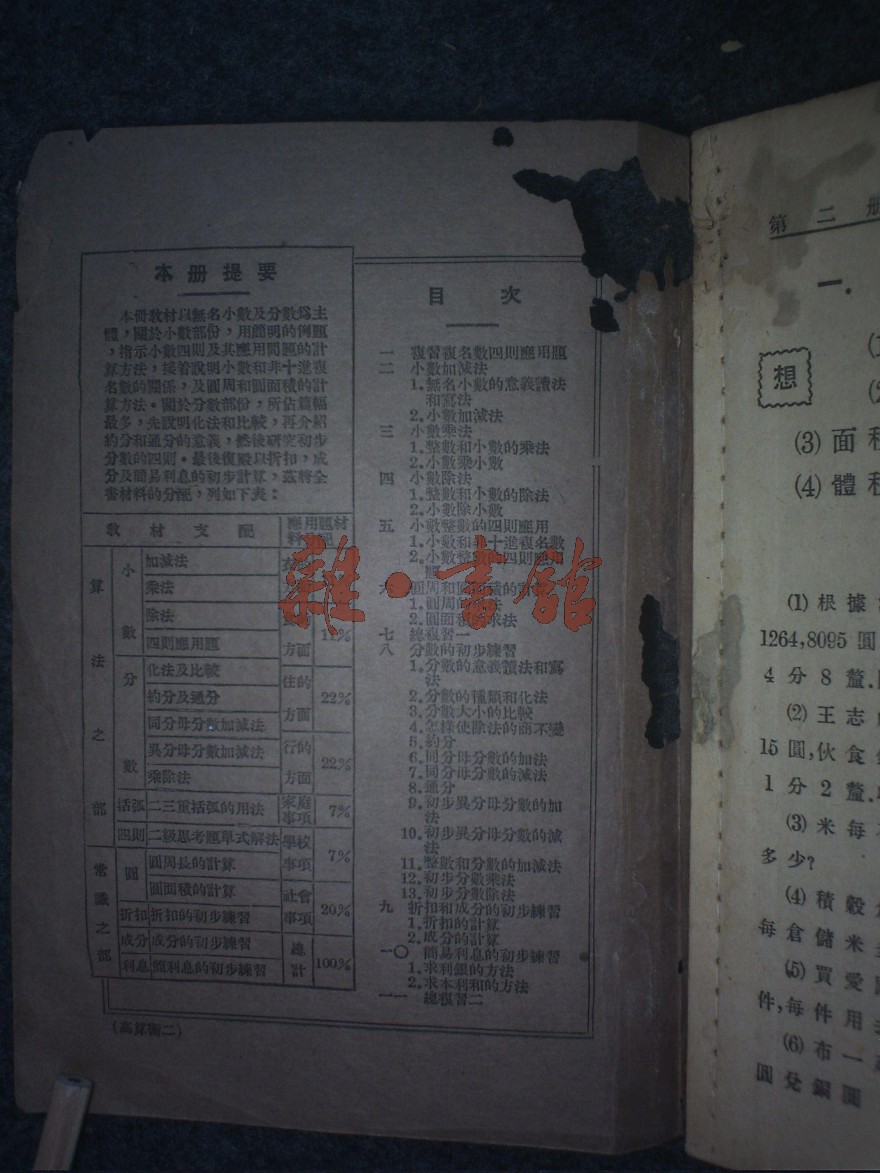 本册提要
本冊教材以無名小數及分數爲主
體，關於小數部份，用簡明的例題
，指示小數四則及其應用問題的計
算方法，接着說明小數和非十進複
名數的關係，及圓周和圓面積的計
算方法。關於分數部份，所佔篇幅
最多，先說明化法和比較，再介紹
約分和通分的意義，然後研究初步
分數的四則。最後復殿以折扣，成
分及簡易利息的初步計算，茲將全
書材料的分配，列如下表：
教材支配
應用題材
算法之部
小數
加減法
乘法
除法
四則應用題
方面
11%
分數
化法及比較
約分及通分
同分母分數加減法
異分母分數加減法
乘除法
住的方面
22%
行的方面
22%
括弧
二三重括弧的用法
家庭事項
7%
四則
二級思考題單式解法
學校事項
7%
常識之部
圓
圓周長的計算
圓面積的計算
社會事項
20%
折扣
折扣的初步練習
成分
成分的初步練習
利息
簡利息的初步練習
總計
100%
(高算術二)
目次
一 複習複名數四則應用題
二 小數加減法
1.無名小數的意義讀法
和寫法
2.小數加減法
三 小數乘法
1.整數和小數的乘法
2.小數乘小數
四 小數除法
1.整數和小數的除法
2.小數除小數
五 小數整數的四則應用
1.小數和非十進複名數
2.小數整數的四則應用
六 圓周和圓面積的
1.圓周的
法
2.圓面積的求法
七 總複習一
八 分數的初步練習
1.分數的意義讀法和寫
法
2.分數的種類和化法
3.分數大小的比較
4.怎樣使除法的商不變
5.約分
6.同分母分數的加法
7.同分母分數的減法
8.通分
9.初步異分母分數的加
法
10.初步異分母分數的減
法
11.整數和分數的加減法
12.初步分數乘法
13.初步分數除法
九 折扣和成分的初步練習
1.折扣的計算
2.成分的計算
一〇 簡易利息的初步練習
1.求利銀的方法
2.求本利和的方法
一一 總複習二
雜·書館
第二册
一.
想
(3)面積
(4)體積
(1)根據
1264,8095圓
4分8釐.
(2)王志
15圓,伙食
1分2釐.
(3)米每
多少?
(4)積穀
每倉儲米
(5)買愛
件,每件用
(6)布一
圓兌銅圓